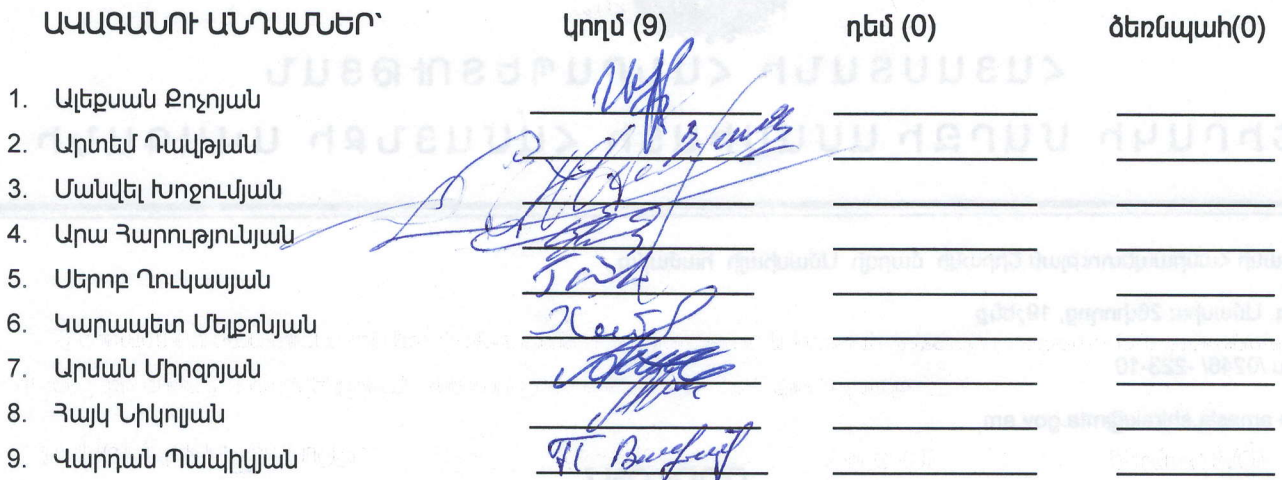 ԱՎԱԳԱՆՈՒ ԱՆԴԱՄՆԵՐ՝ կողմ (9) դեմ (0) ձեռնպահ(0)
1. Ալեքսան Քոչոյան
2. Արտեմ Դավթյան
3. Մանվել Խոջումյան
4. Արա Հարությունյան
5. Սերոբ Ղուկասյան
6. Կարապետ Մելքոնյան
7. Արման Միրզոյան
8. Հայկ Նիկոլյան
9. Վարդան Պապիկյան